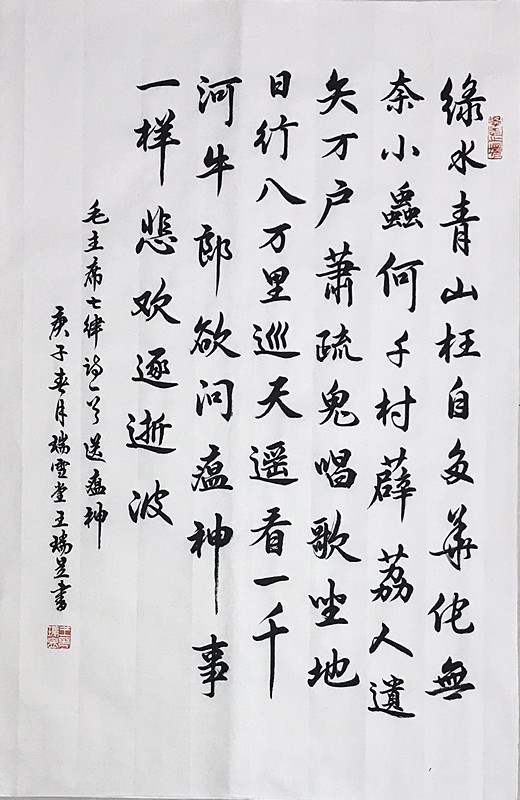 绿水青山枉自多華佗無
奈小蟲何千村薜荔人遺
矢万户蕭疏鬼唱歌坐地
日行八万里巡天遥看一千
河牛郎欲问瘟神事
一样悲欢逐逝波
毛主席七律诗一首送瘟神
庚子春月瑞雪堂王瑞書